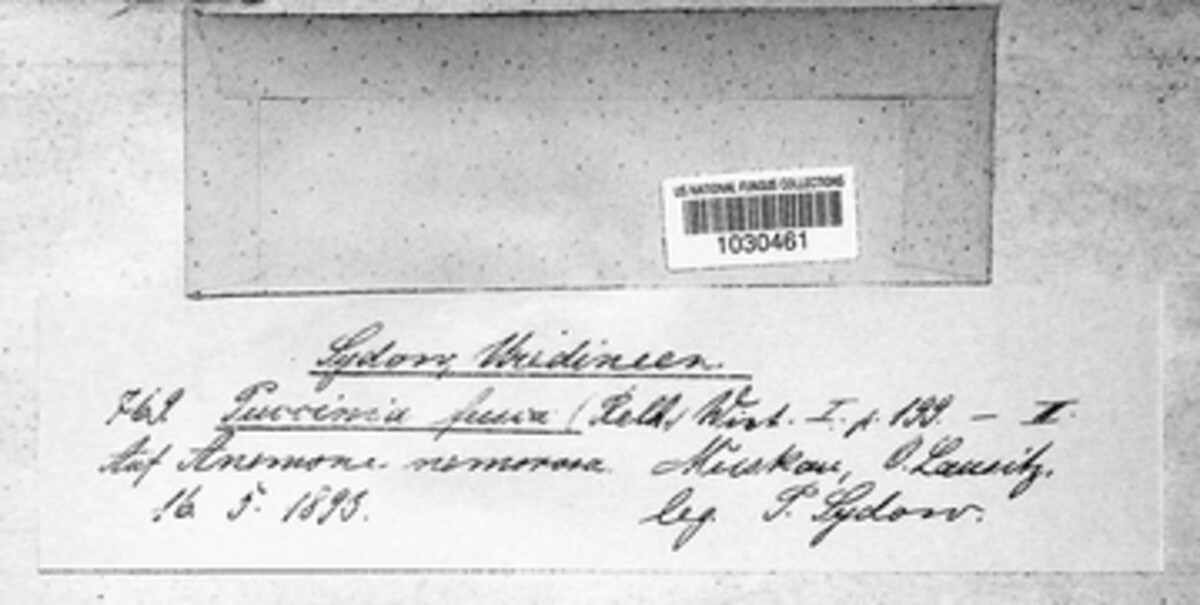 US NATIONAL FUNGUS COLLECTIONS
1030461
Sydow, Uredineen.
762. Puccinia fusca (Relh.) Wint. I. p. 199. – II.
Auf Anemone nemorosa. Muskau, O. Lausitz.
16. 5. 1893. leg. P. Sydow.